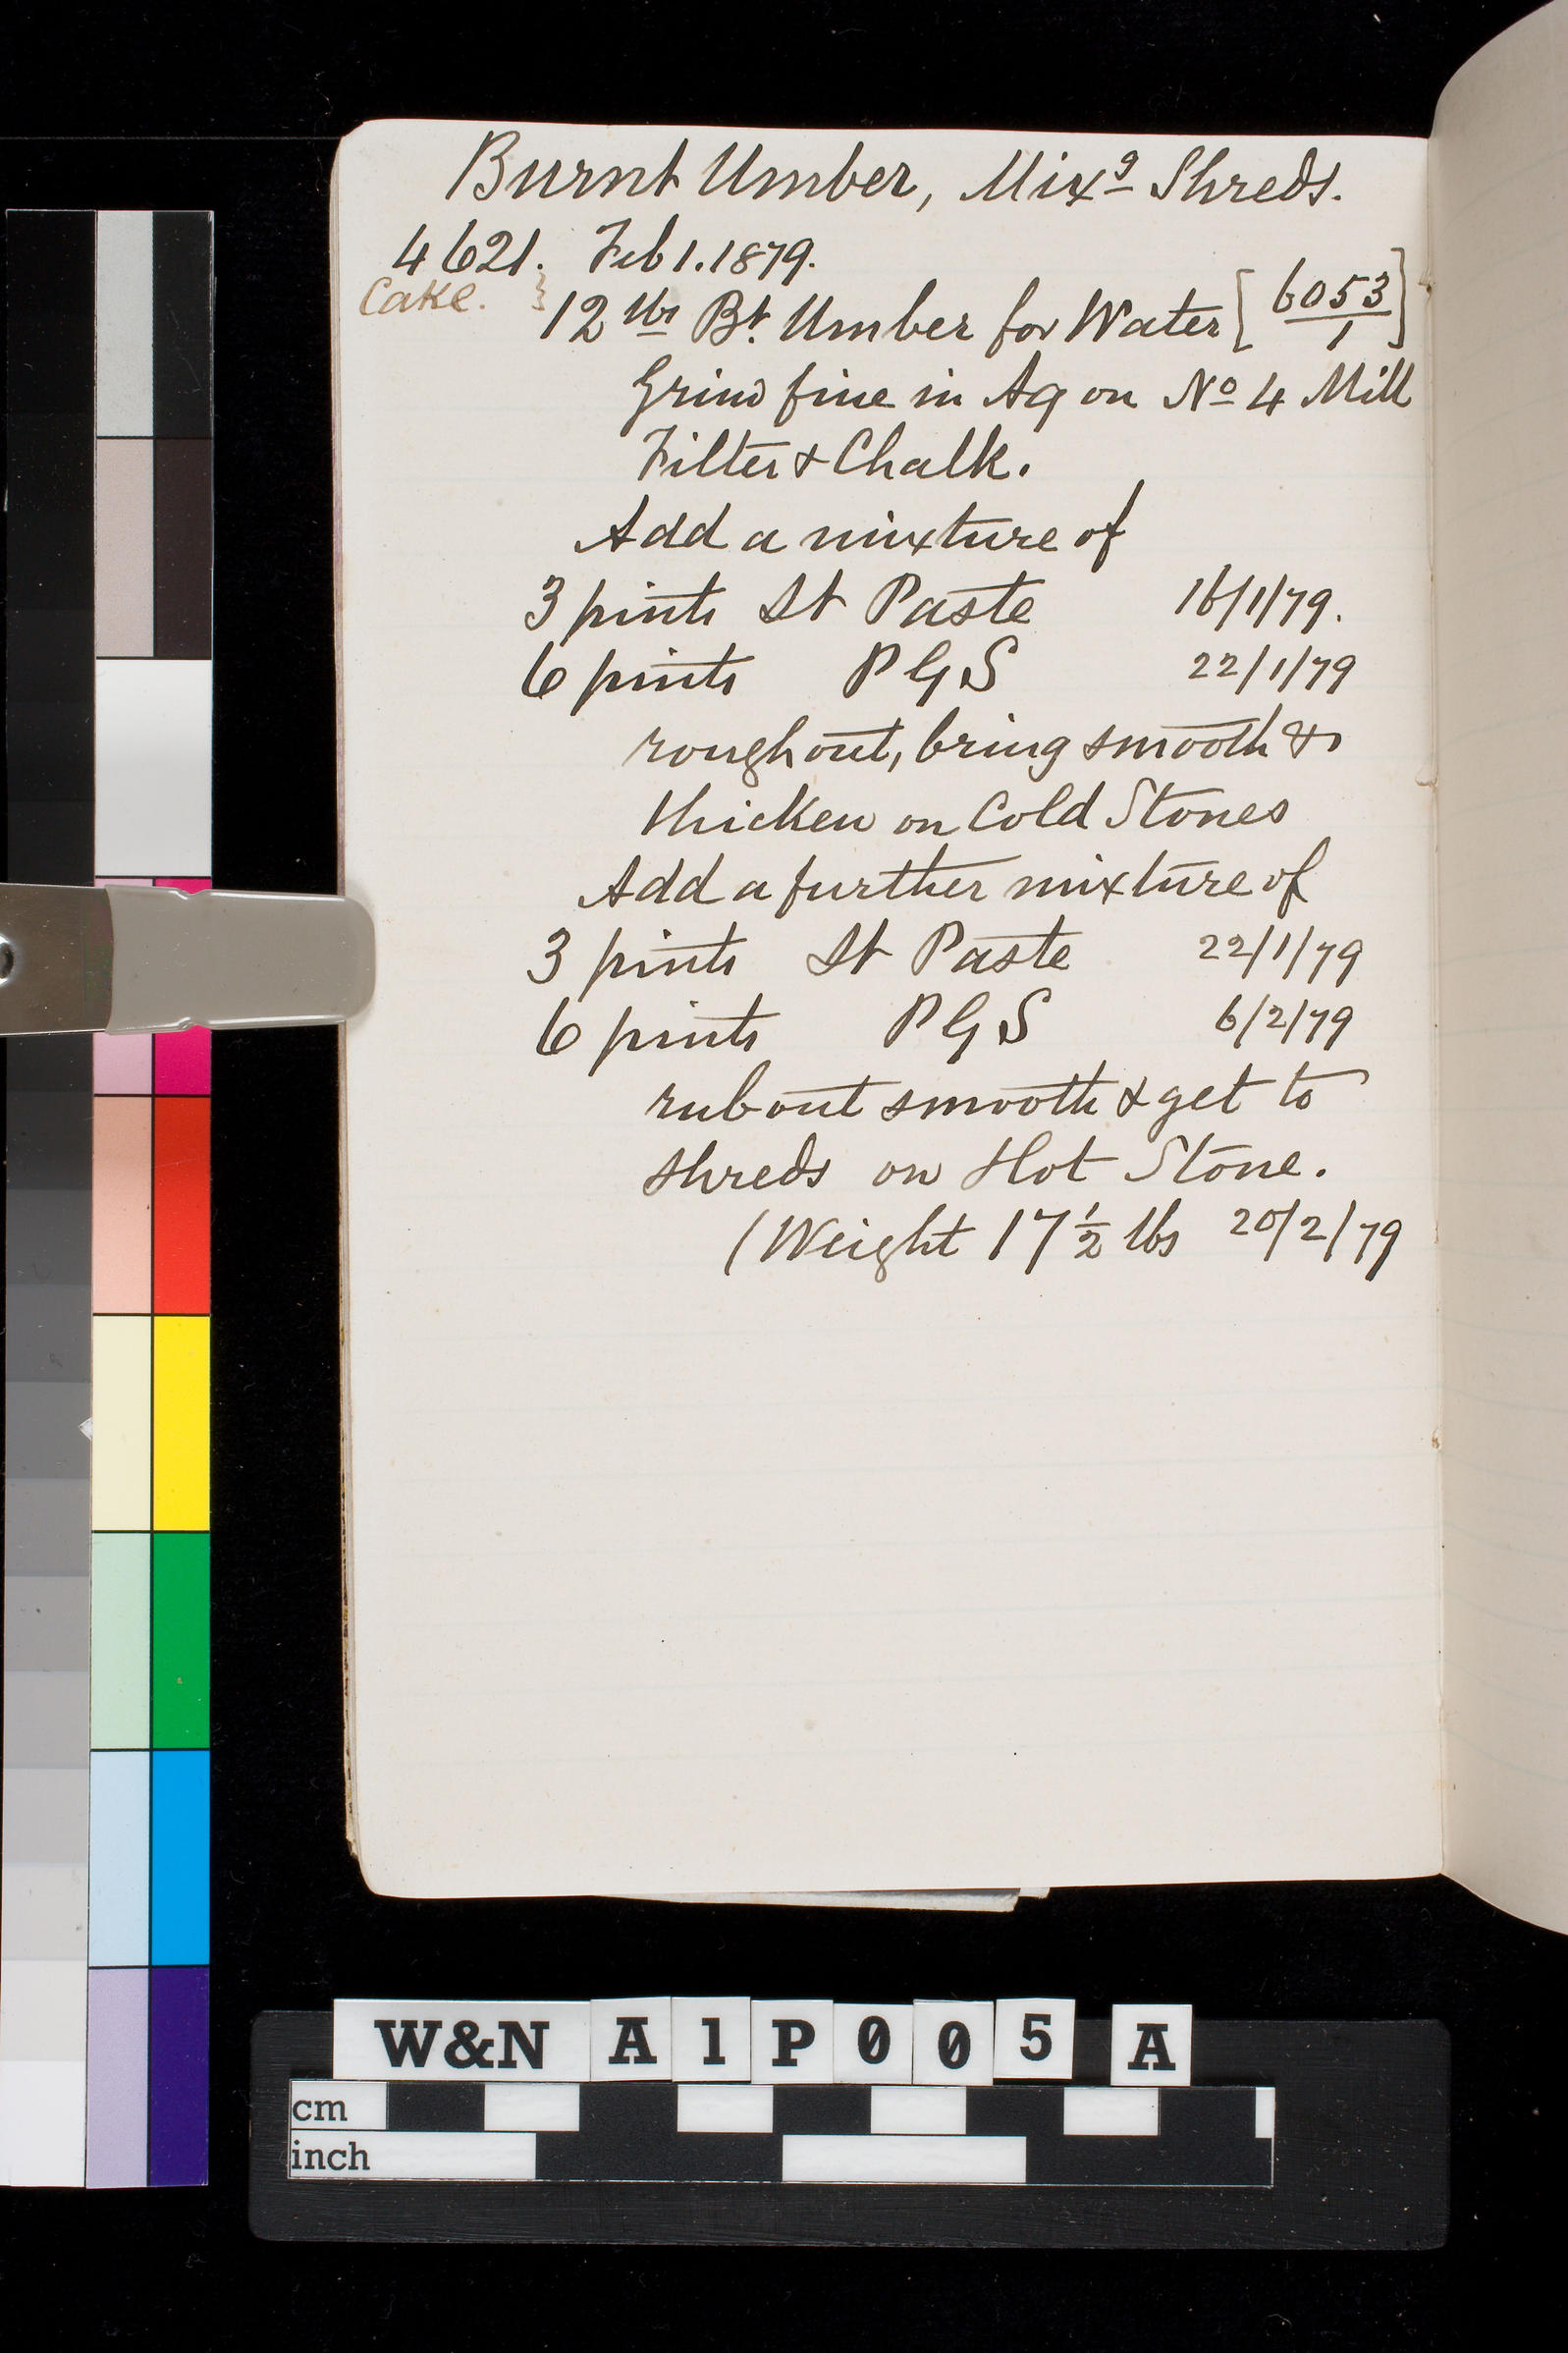 Burnt Umber, Mixg Shreds.
4621. Feb 1. 1879.
Cake. } 12 lbs Bt. Umber for Water [6053/1]
Grind fine in Aq on No 4 Mill
Filter & Chalk.
Add a mixture of
3 pints St Paste 16/1/79.
6 pints P G S 22/1/79
rough out, bring smooth &
thicken on Cold Stones
Add a further mixture of
3 pints St Paste 22/1/79
6 pints P G S 6/2/79
rub out smooth & get to
shreds on Hot Stone.
(Weight 17 1/2 lbs 20/2/79
W&N A1P005 A
cm
inch